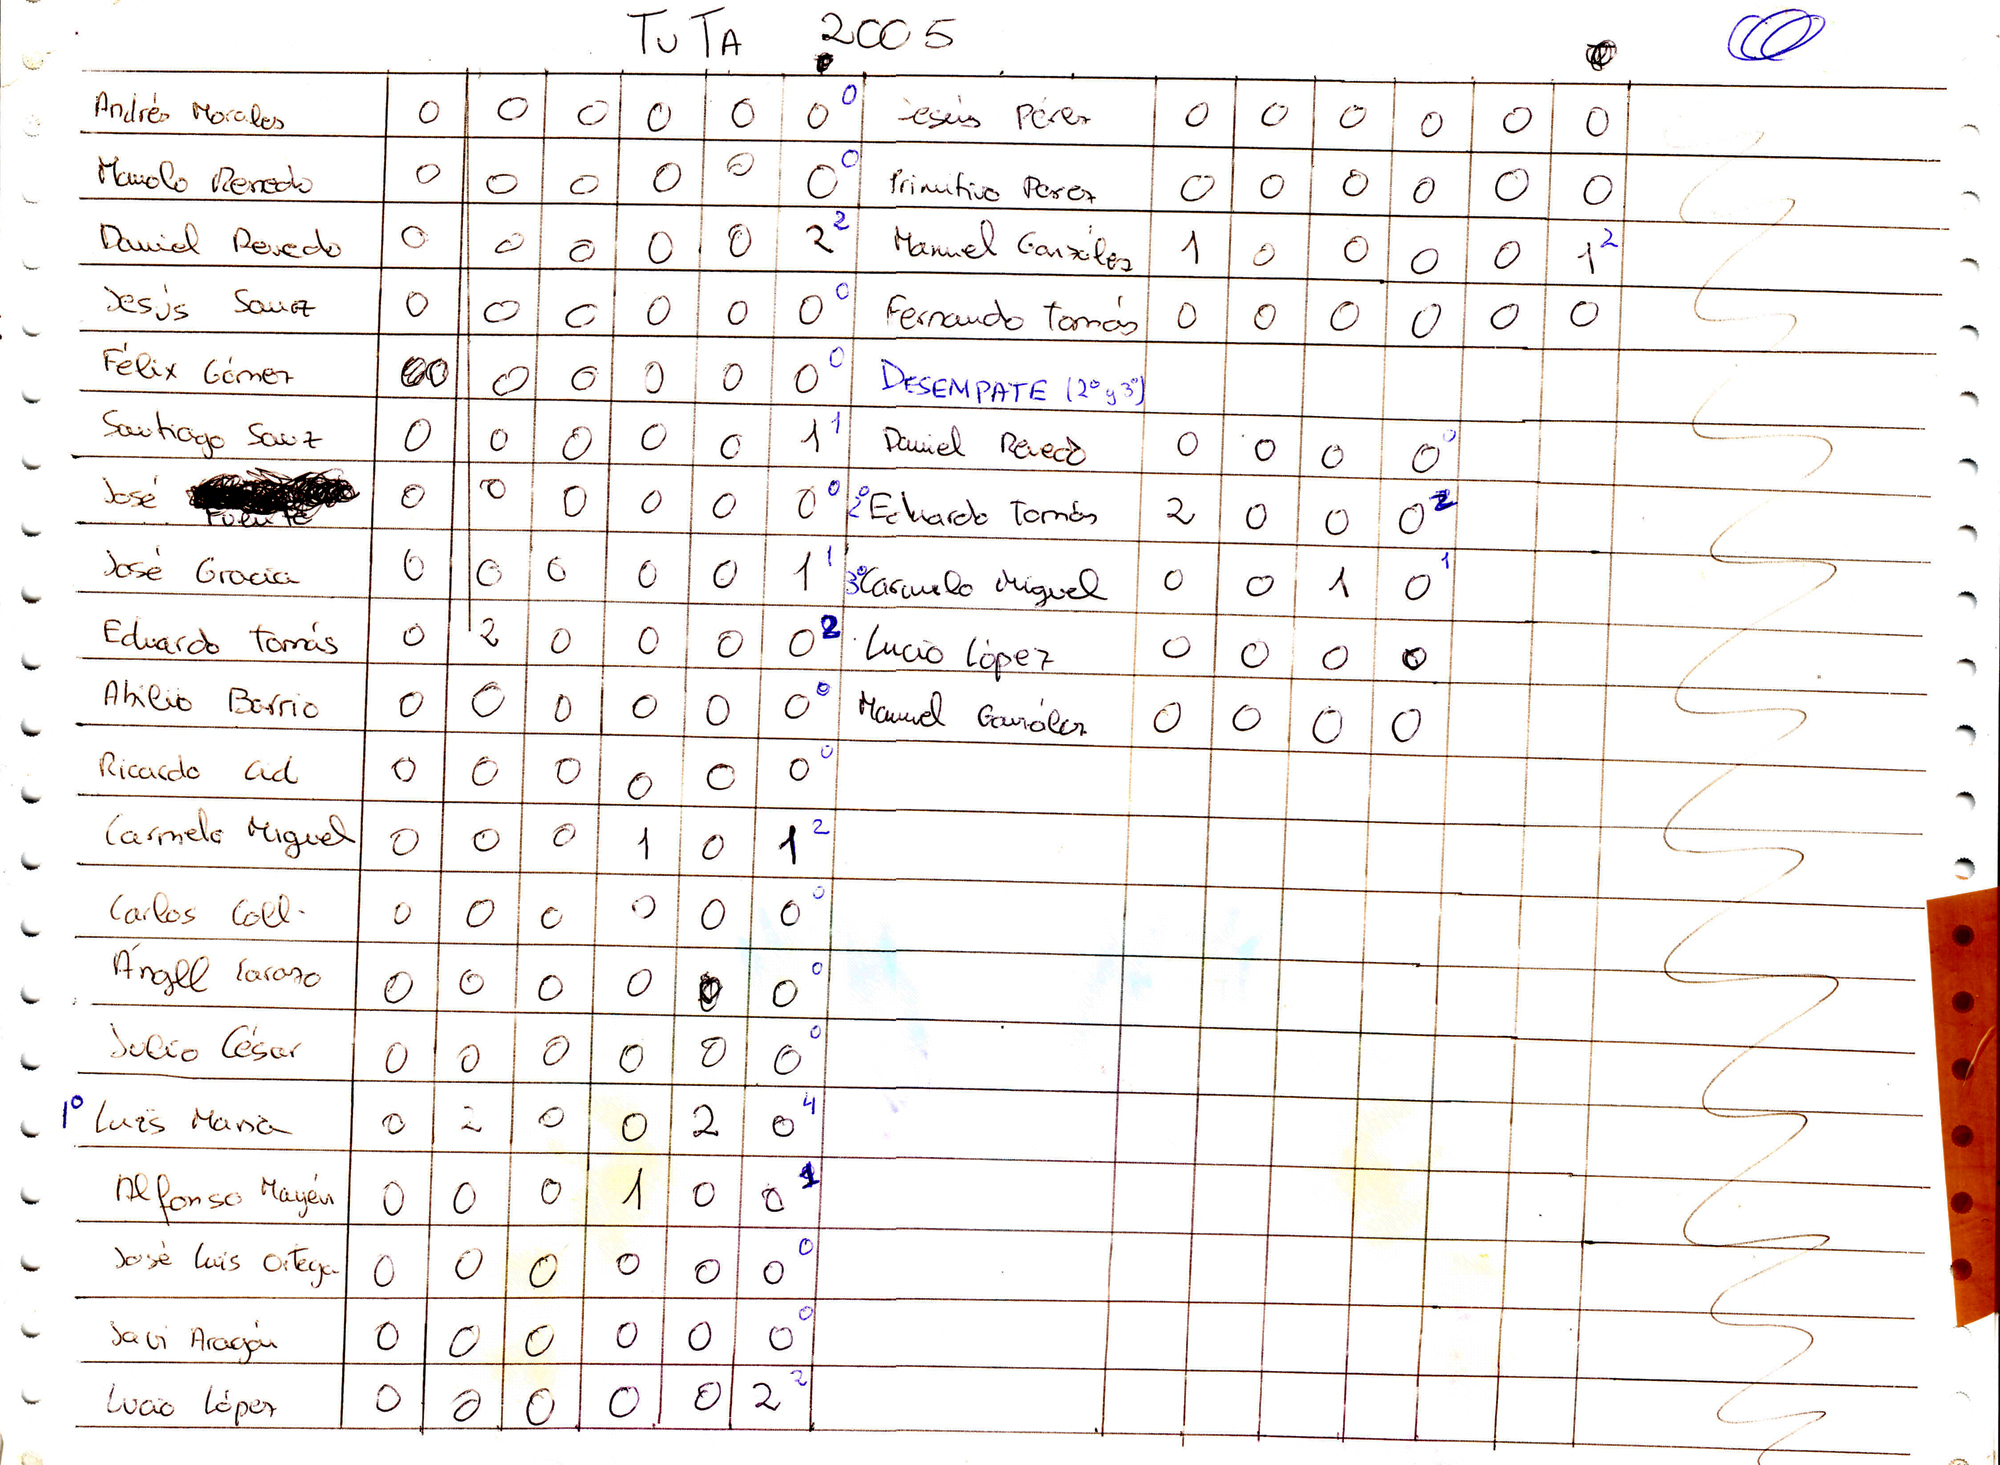 TUTA 2005
Andrés Morales 0 0 0 0 0 0 0
Manolo Revedo 0 0 0 0 0 0 0
Daniel Revedo 0 0 0 0 0 2 2
Jesús Sanz 0 0 0 0 0 0 0
Félix Gómez 0 0 0 0 0 0 0
Santiago Sanz 0 0 0 0 0 1 1
José Fuente 0 0 0 0 0 0 0
José Gracia 0 0 0 0 0 1 1
Eduardo Tomás 0 2 0 0 0 0 2
Abilio Barrio 0 0 0 0 0 0 0
Ricardo Cid 0 0 0 0 0 0 0
Carmelo Miguel 0 0 0 1 0 1 2
Carlos Coll. 0 0 0 0 0 0 0
Ángel Carazo 0 0 0 0 0 0 0
Julio César 0 0 0 0 0 0 0
1º Luis María 0 2 0 0 2 0 4
Alfonso Mayén 0 0 0 1 0 0 1
José Luis Ortega 0 0 0 0 0 0 0
Javi Aragón 0 0 0 0 0 0 0
Lucio López 0 0 0 0 0 2 2
Jesús Pérez 0 0 0 0 0 0
Primitivo Perez 0 0 0 0 0 0
Manuel González 1 0 0 0 0 1 2
Fernando Tomás 0 0 0 0 0 0
DESEMPATE (2º y 3º)
Daniel Revedo 0 0 0 0 0
2º Eduardo Tomás 2 0 0 0 2
3º Carmelo Miguel 0 0 1 0 1
Lucio López 0 0 0 0
Manuel González 0 0 0 0